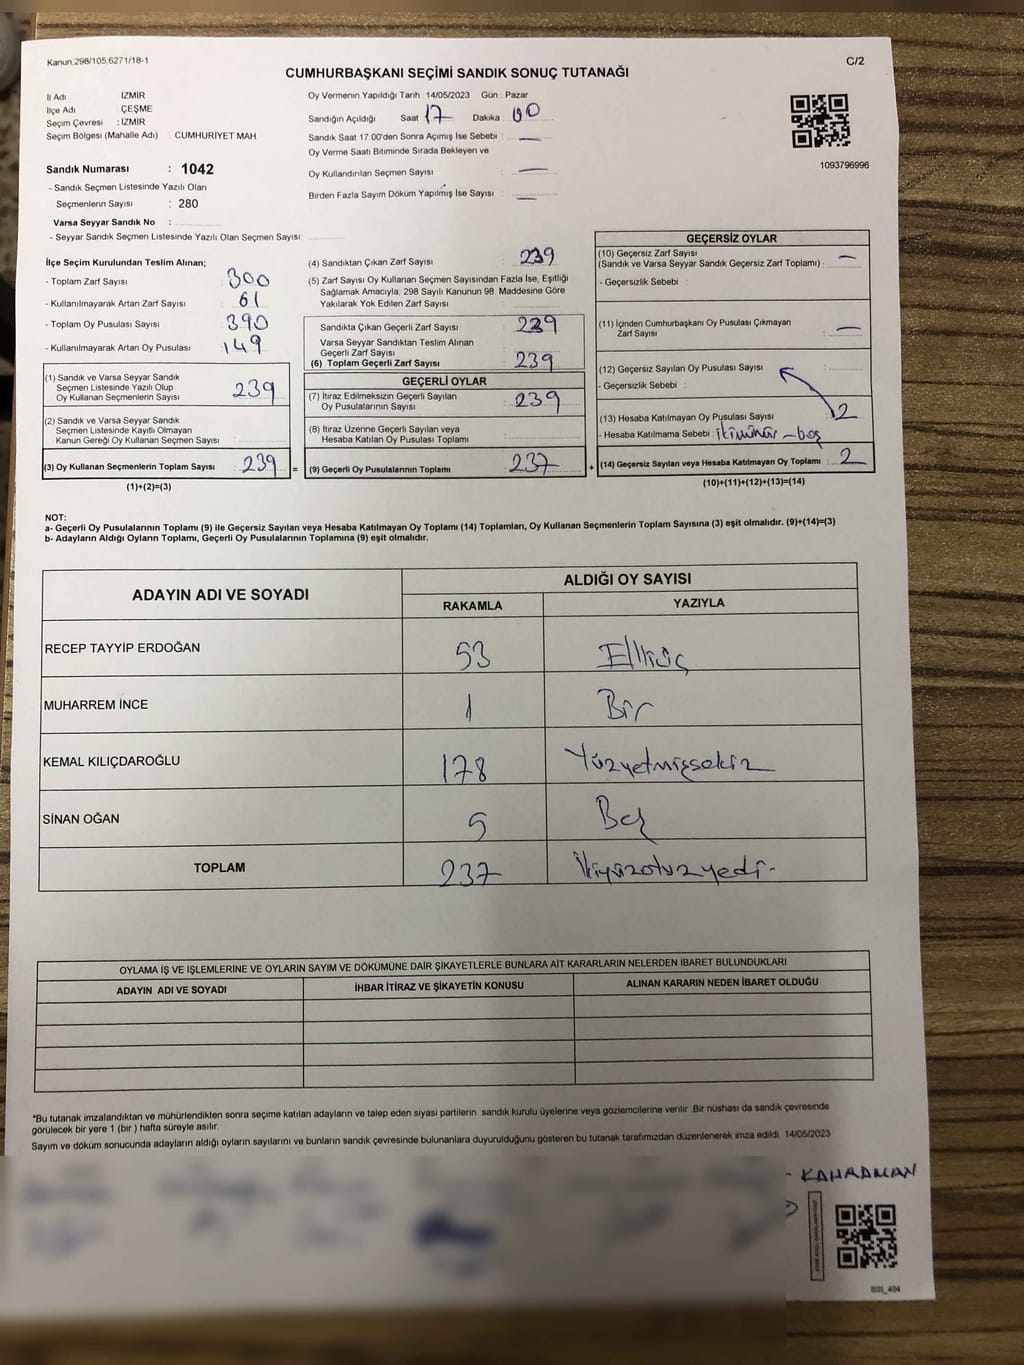 Kanun.298/105.6271/18-1
C/2
CUMHURBAŞKANI SEÇİMİ SANDIK SONUÇ TUTANAĞI
İl Adı İZMİR
İlçe Adı ÇEŞME
Seçim Çevresi : İZMİR
Seçim Bölgesi (Mahalle Adı) : CUMHURİYET MAH
Sandık Numarası : 1042
- Sandık Seçmen Listesinde Yazılı Olan
Seçmenlerin Sayısı : 280
Varsa Seyyar Sandık No :
- Seyyar Sandık Seçmen Listesinde Yazılı Olan Seçmen Sayısı:
Oy Vermenin Yapıldığı Tarih : 14/05/2023 Gün : Pazar
Sandığın Açıldığı Saat 17 Dakika : 00
Sandık Saat 17:00'den Sonra Açımış İse Sebebi : —
Oy Verme Saati Bitiminde Sırada Bekleyen ve
Oy Kullandırılan Seçmen Sayısı : —
Birden Fazla Sayım Döküm Yapılmış İse Sayısı : —
1093796996
İlçe Seçim Kurulundan Teslim Alınan;
- Toplam Zarf Sayısı : 300
- Kullanılmayarak Artan Zarf Sayısı : 61
- Toplam Oy Pusulası Sayısı : 390
- Kullanılmayarak Artan Oy Pusulası : 149
(1) Sandık ve Varsa Seyyar Sandık
Seçmen Listesinde Yazılı Olup
Oy Kullanan Seçmenlerin Sayısı : 239
(2) Sandık ve Varsa Seyyar Sandık
Seçmen Listesinde Kayıtlı Olmayan
Kanun Gereği Oy Kullanan Seçmen Sayısı :
(3) Oy Kullanan Seçmenlerin Toplam Sayısı : 239 =
(1)+(2)=(3)
(4) Sandıktan Çıkan Zarf Sayısı : 239
(5) Zarf Sayısı Oy Kullanan Seçmen Sayısından Fazla İse, Eşitliği
Sağlamak Amacıyla, 298 Sayılı Kanunun 98. Maddesine Göre
Yakılarak Yok Edilen Zarf Sayısı :
Sandıkta Çıkan Geçerli Zarf Sayısı : 239
Varsa Seyyar Sandıktan Teslim Alınan
Geçerli Zarf Sayısı
(6) Toplam Geçerli Zarf Sayısı : 239
GEÇERLİ OYLAR
(7) İtiraz Edilmeksizin Geçerli Sayılan
Oy Pusulalarının Sayısı : 239
(8) İtiraz Üzerine Geçerli Sayılan veya
Hesaba Katılan Oy Pusulası Toplamı :
(9) Geçerli Oy Pusulalarının Toplamı : 237 +
GEÇERSİZ OYLAR
(10) Geçersiz Zarf Sayısı
(Sandık ve Varsa Seyyar Sandık Geçersiz Zarf Toplamı) : —
- Geçersizlik Sebebi :
(11) İçinden Cumhurbaşkanı Oy Pusulası Çıkmayan
Zarf Sayısı : —
(12) Geçersiz Sayılan Oy Pusulası Sayısı :
- Geçersizlik Sebebi :
(13) Hesaba Katılmayan Oy Pusulası Sayısı : 2
- Hesaba Katılmama Sebebi : iki mühür - boş
(14) Geçersiz Sayılan veya Hesaba Katılmayan Oy Toplamı : 2
(10)+(11)+(12)+(13)=(14)
NOT:
a- Geçerli Oy Pusulalarının Toplamı (9) ile Geçersiz Sayılan veya Hesaba Katılmayan Oy Toplamı (14) Toplamları, Oy Kullanan Seçmenlerin Toplam Sayısına (3) eşit olmalıdır. (9)+(14)=(3)
b- Adayların Aldığı Oyların Toplamı, Geçerli Oy Pusulalarının Toplamına (9) eşit olmalıdır.
ADAYIN ADI VE SOYADI
ALDIĞI OY SAYISI
RAKAMLA YAZIYLA
RECEP TAYYİP ERDOĞAN 53 Elliüç
MUHARREM İNCE 1 Bir
KEMAL KILIÇDAROĞLU 178 Yüzyetmişsekiz
SİNAN OĞAN 5 Beş
TOPLAM 237 İkiyüzotuzyedi-
OYLAMA İŞ VE İŞLEMLERİNE VE OYLARIN SAYIM VE DÖKÜMÜNE DAİR ŞİKAYETLERLE BUNLARA AİT KARARLARIN NELERDEN İBARET BULUNDUKLARI
ADAYIN ADI VE SOYADI İHBAR İTİRAZ VE ŞİKAYETİN KONUSU ALINAN KARARIN NEDEN İBARET OLDUĞU
*Bu tutanak imzalandıktan ve mühürlendikten sonra seçime katılan adayların ve talep eden siyasi partilerin sandık kurulu üyelerine veya gözlemcilerine verilir. Bir nüshası da sandık çevresinde
görülecek bir yere 1 (bir ) hafta süreyle asılır.
Sayım ve döküm sonucunda adayların aldığı oyların sayılarını ve bunların sandık çevresinde bulunanlara duyurulduğunu gösteren bu tutanak tarafımızdan düzenlenerek imza edildi. 14/05/2023
- KAHRAMAN
SSI_404